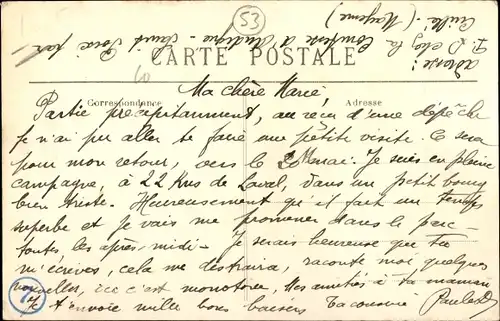 adresse :
P. D. chez la Comtesse d'Andigné - Saint Poix par
Cuillé - (Mayenne)
53
CARTE POSTALE
Correspondance
Adresse
Ma chère Marie,
Partie précipitamment, au reçu d'une dépêche
je n'ai pu aller te faire une petite visite. Ce sera
pour mon retour, vers le 20 . Je suis en pleine
campagne, à 22 Kms de Laval, dans un petit bourg
bien triste. Heureusement qu'il fait un temps
superbe et je vais me promener dans le parc
toutes les après-midi - Je serais heureuse que tu
m'écrives, cela me distraira, raconte moi quelques
nouvelles, ici c'est monotone. Mes amitiés à ta maman
Je t'envoie mille bons baisers Ta cousine